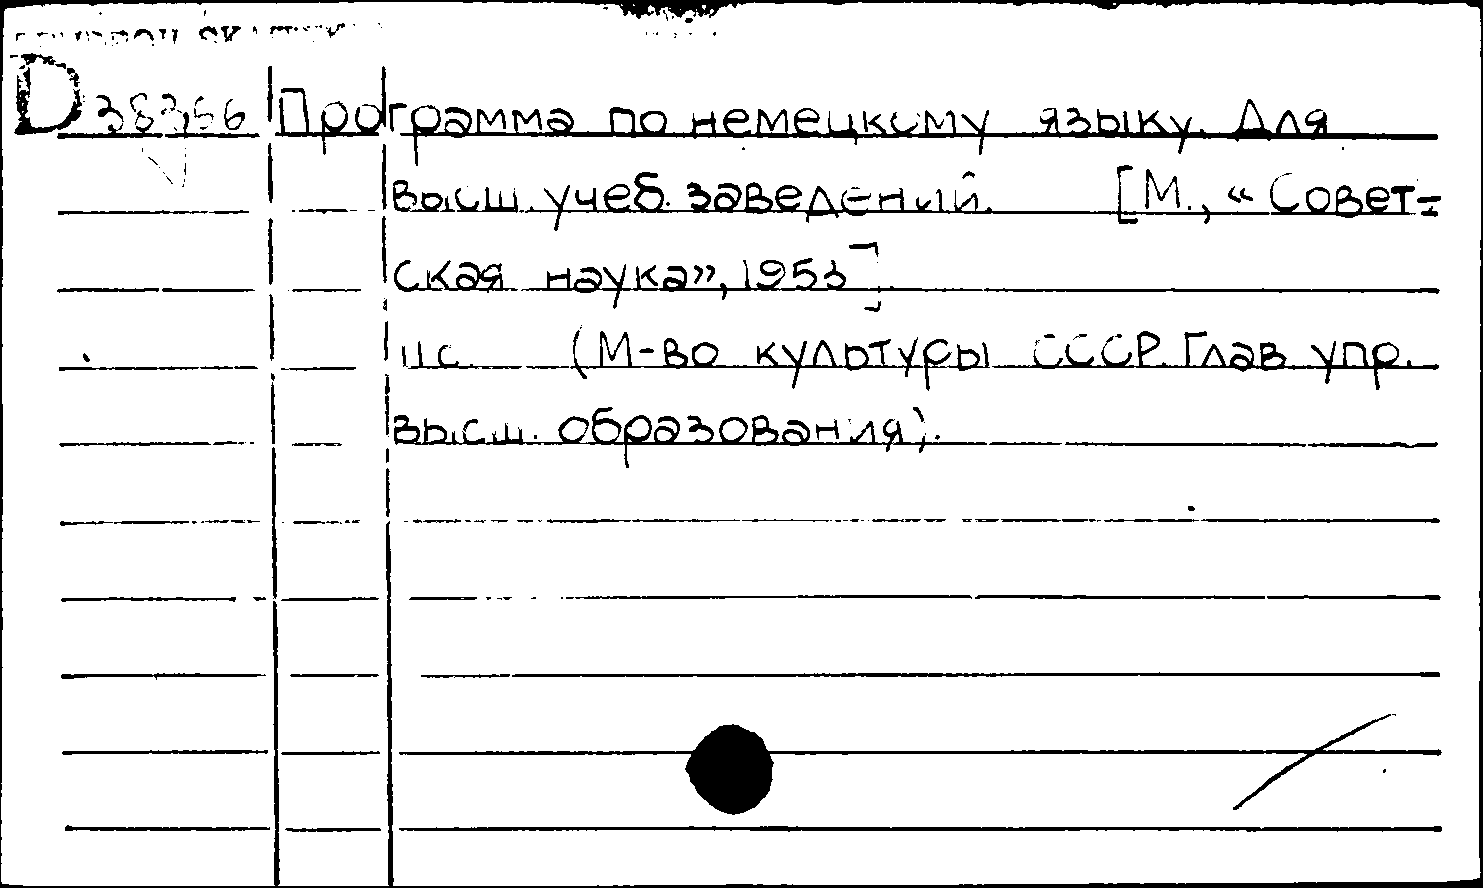 D 38366 Программа по немецкому языку. Для
высш. учеб. заведений. [М., «Совет-
ская наука», 1953].
11 с. (М-во культуры СССР. Глав. упр.
высш. образования).